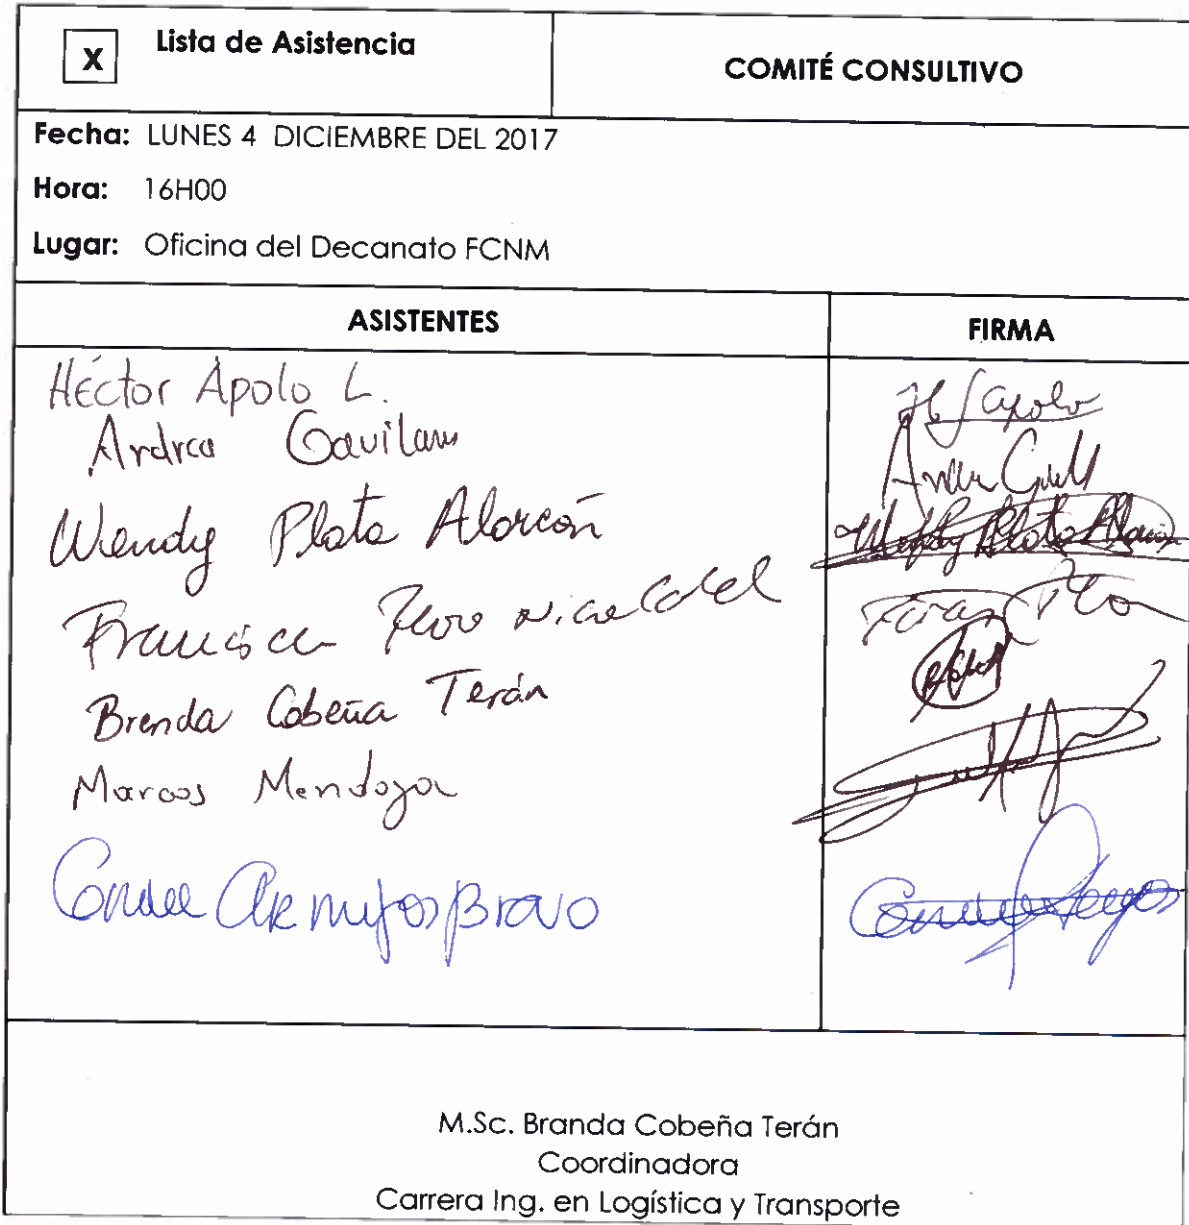 X Lista de Asistencia
COMITÉ CONSULTIVO
Fecha: LUNES 4 DICIEMBRE DEL 2017
Hora: 16H00
Lugar: Oficina del Decanato FCNM
ASISTENTES
FIRMA
Héctor Apolo L.
Andrea Gavilan
Wendy Plata Alarcón
Wendy Plata Alarcón
Francisca
Brenda Cobeña Terán
Marcos Mendoza
Armijos Bravo
M.Sc. Branda Cobeña Terán
Coordinadora
Carrera Ing. en Logística y Transporte